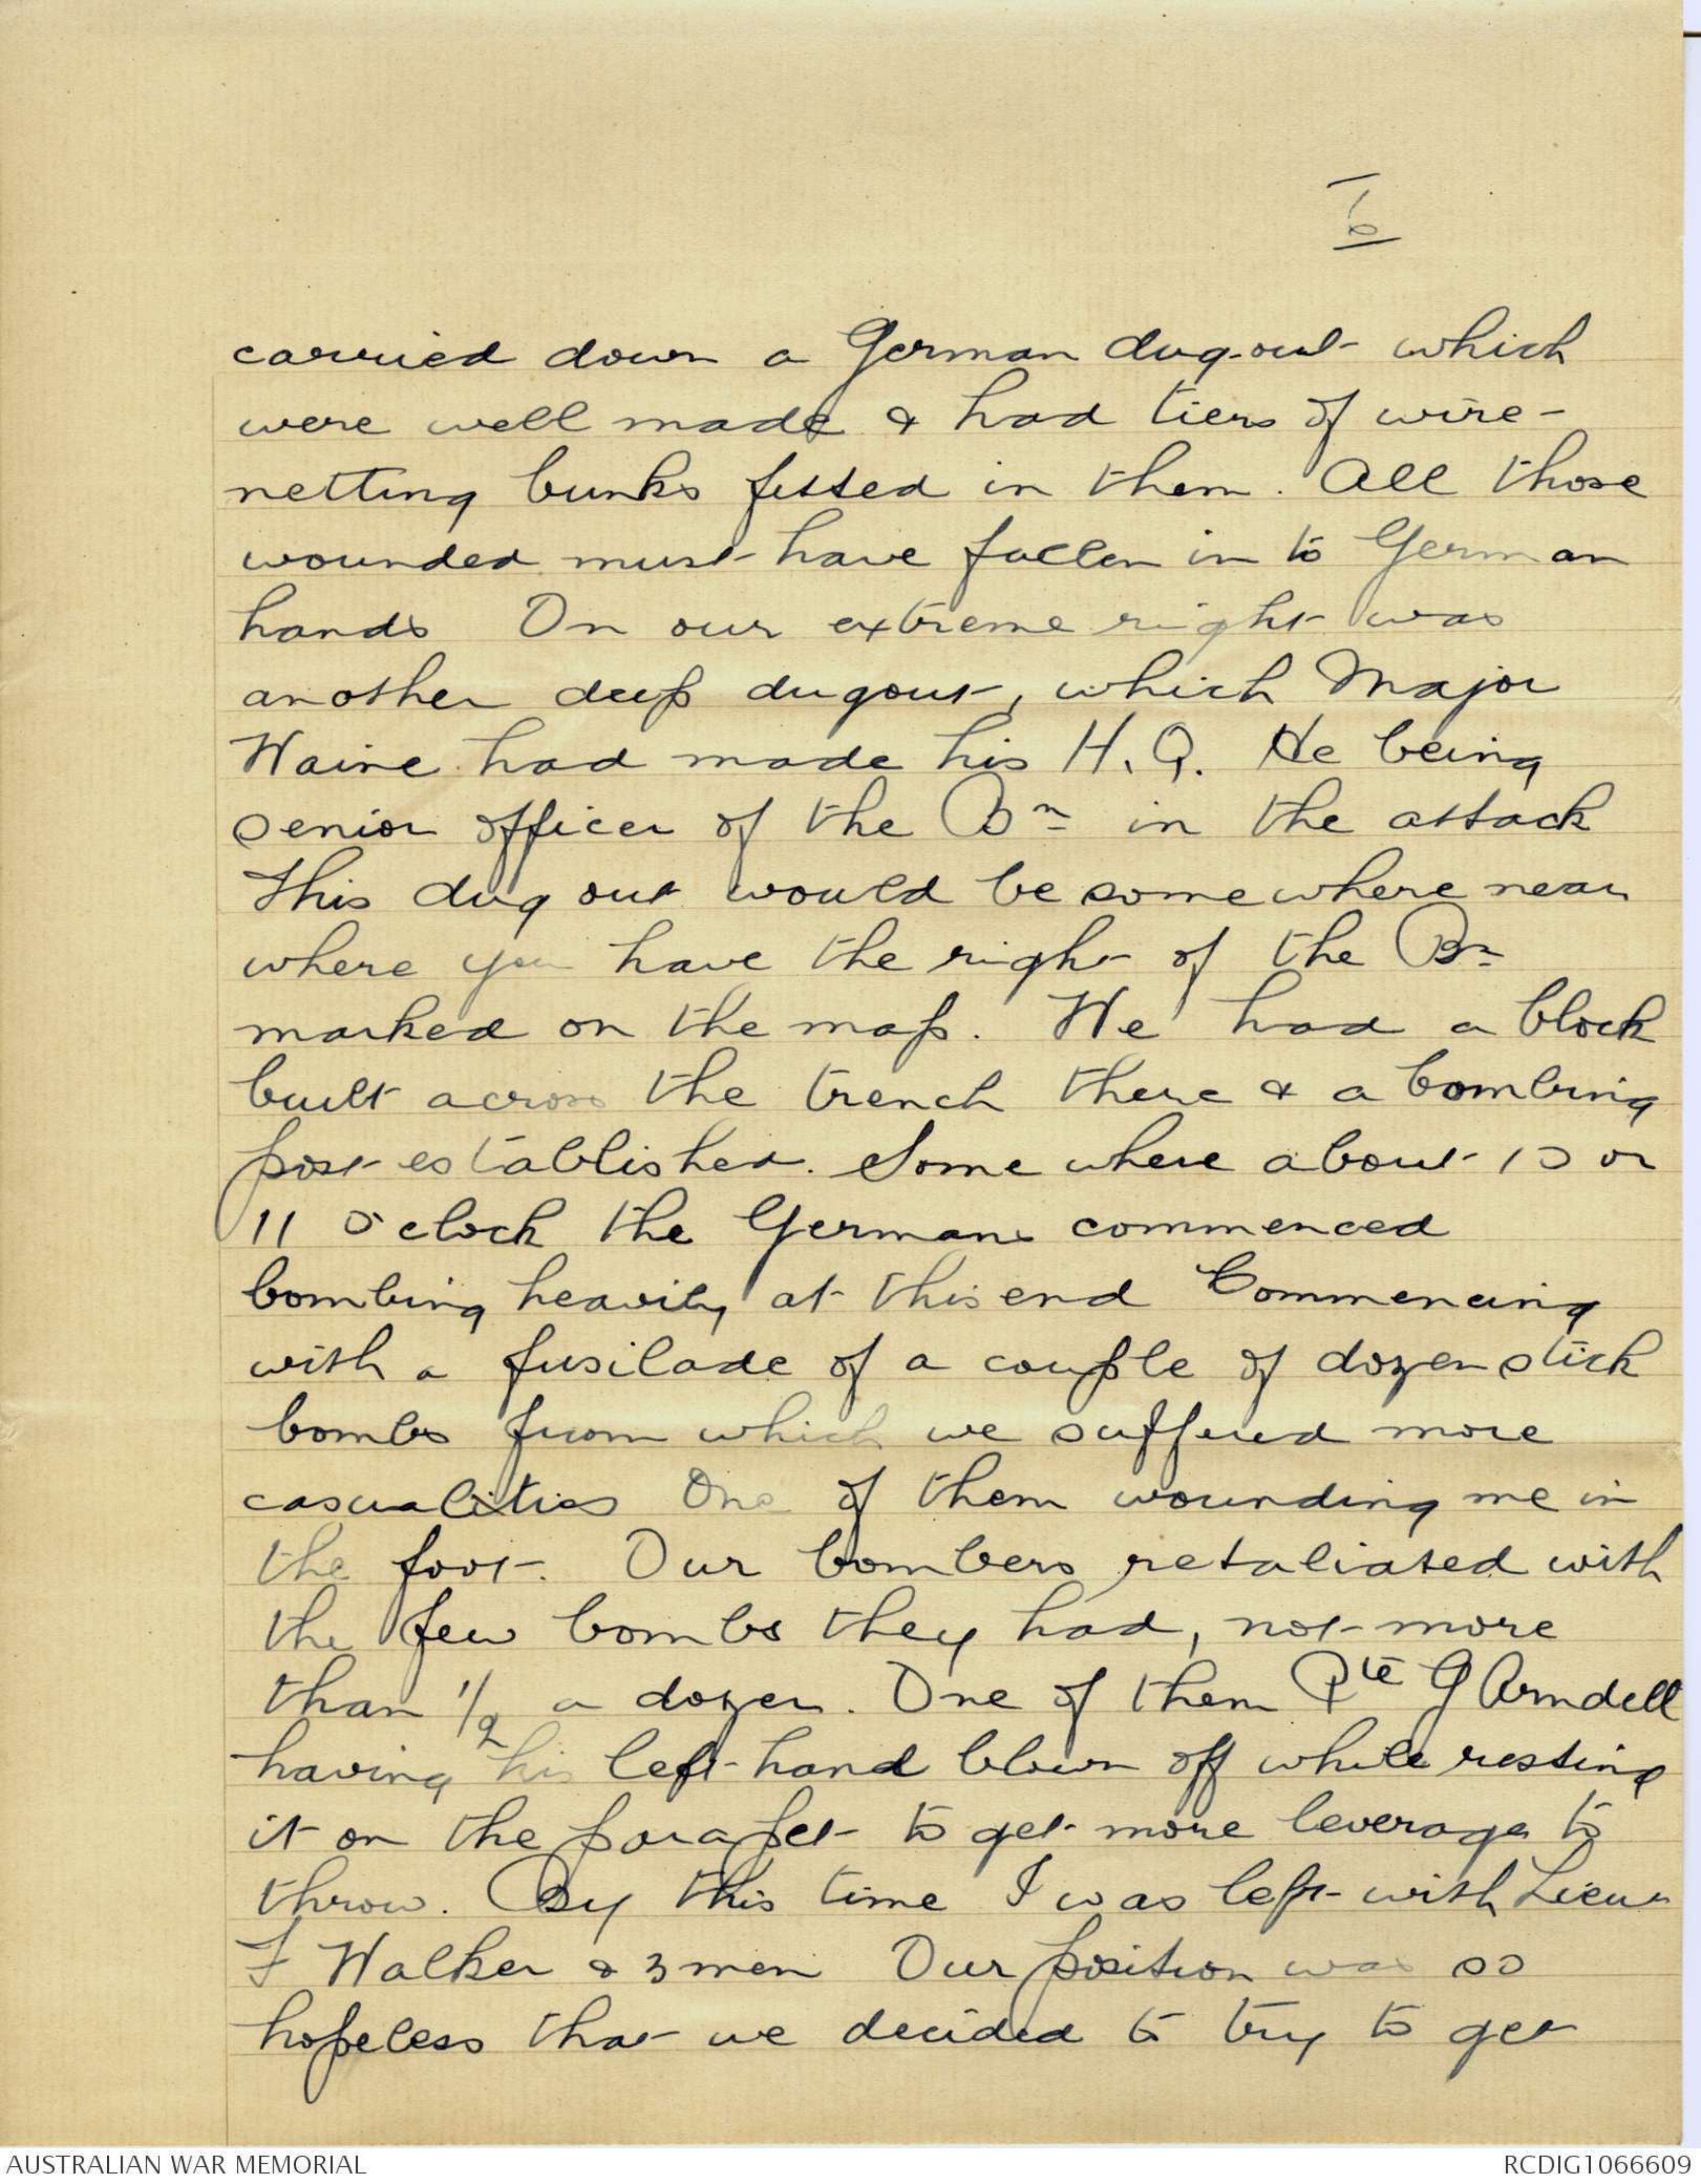 6
carried down a German dug-out which
were well made & had tiers of wire-
netting bunks fitted in them. All those
wounded must have fallen in to German
hands On our extreme right was
another deep dugout, which Major
Waine had made his H.Q. He being
senior officer of the Bn in the attack
This dug out would be somewhere near
where you have the right of the Bn
marked on the map. We had a block
built across the trench there & a bombing
post established. Some where about 10 or
11 o'clock the Germans commenced
bombing heavily at this end Commencing
with a fusilade of a couple of dozen stick
bombs from which we suffered more
casualities One of them wounding me in
the foot. Our bombers retaliated with
the few bombs they had, not more
than 1/2 a dozen. One of them Pte G Arndell
having his left hand blown off while resting
it on the parapet to get more leverage to
throw. By this time I was left with Lieut
F Walker & 3 men Our position was so
hopeless that we decided to try to get
AUSTRALIAN WAR MEMORIAL
RCDIG1066609